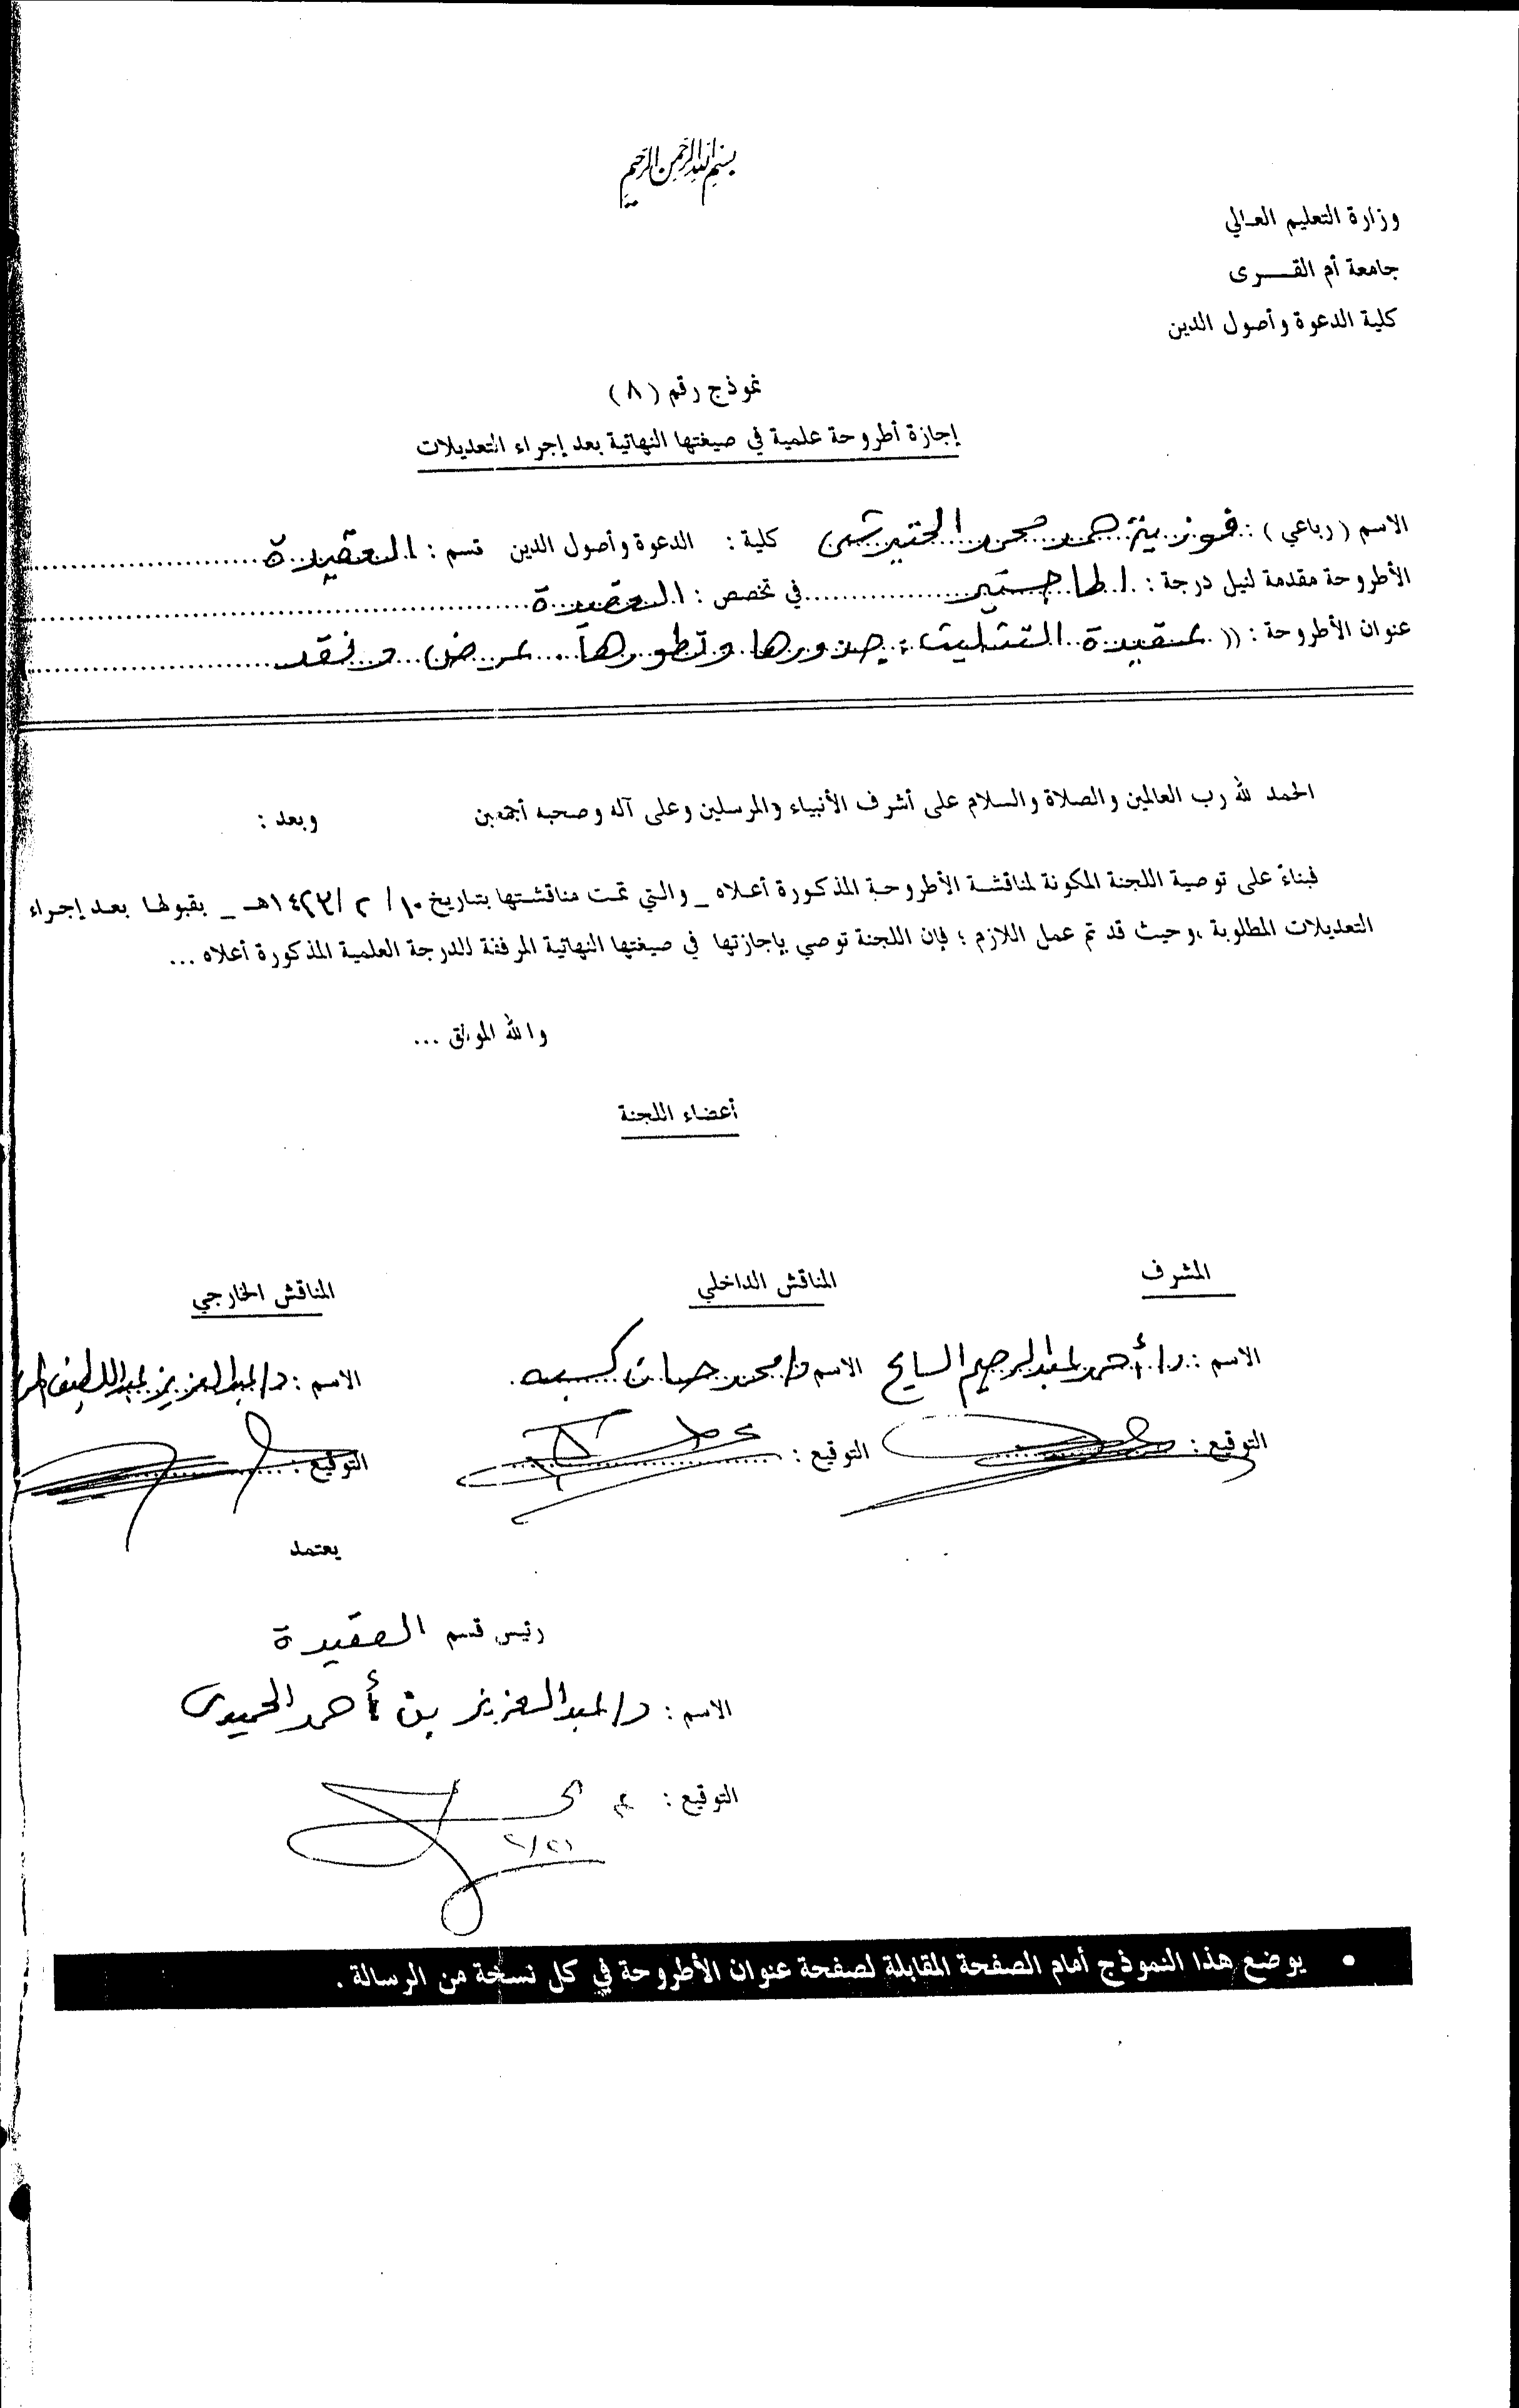 بسم الله الرحمن الرحيم
وزارة التعليم العالي
جامعة أم القــــرى
كلية الدعوة وأصول الدين
نموذج رقم ( ٨ )
إجازة أطروحة علمية في صيغتها النهائية بعد إجراء التعديلات
الاسم ( رباعي ) : فوزية حمد محمد كلية : الدعوة وأصول الدين قسم : العقيدة
الأطروحة مقدمة لنيل درجة : الماجستير في تخصص : العقيدة
عنوان الأطروحة : (( عقيدة التثليث : جذورها وتطورها . عرض ونقد
الحمد لله رب العالمين والصلاة والسلام على أشرف الأنبياء والمرسلين وعلى آله وصحبه أجمعين وبعد :
فبناءً على توصية اللجنة المكونة لمناقشة الأطروحة المذكورة أعلاه _ والتي تمت مناقشتها بتاريخ ١٠ / ٢ / ١٤٢٣هـ _ بقبولها بعد إجراء
التعديلات المطلوبة ، وحيث قد تم عمل اللازم ؛ فإن اللجنة توصي بإجازتها في صيغتها النهائية المرفقة للدرجة العلمية المذكورة أعلاه ...
والله الموفق ...
أعضاء اللجنة
المشرف المناقش الداخلي المناقش الخارجي
الاسم : د/ أحمد عبدالرحيم السايح الاسم د/ محمد حسان كسبه الاسم : د/ عبدالعزيز عبداللطيف
التوقيع : التوقيع : التوقيع :
يعتمد
رئيس قسم العقيدة
الاسم : د/ عبدالعزيز بن أحمد الحميدي
التوقيع :
٢/٢١
• يوضع هذا النموذج أمام الصفحة المقابلة لصفحة عنوان الأطروحة في كل نسخة من الرسالة .